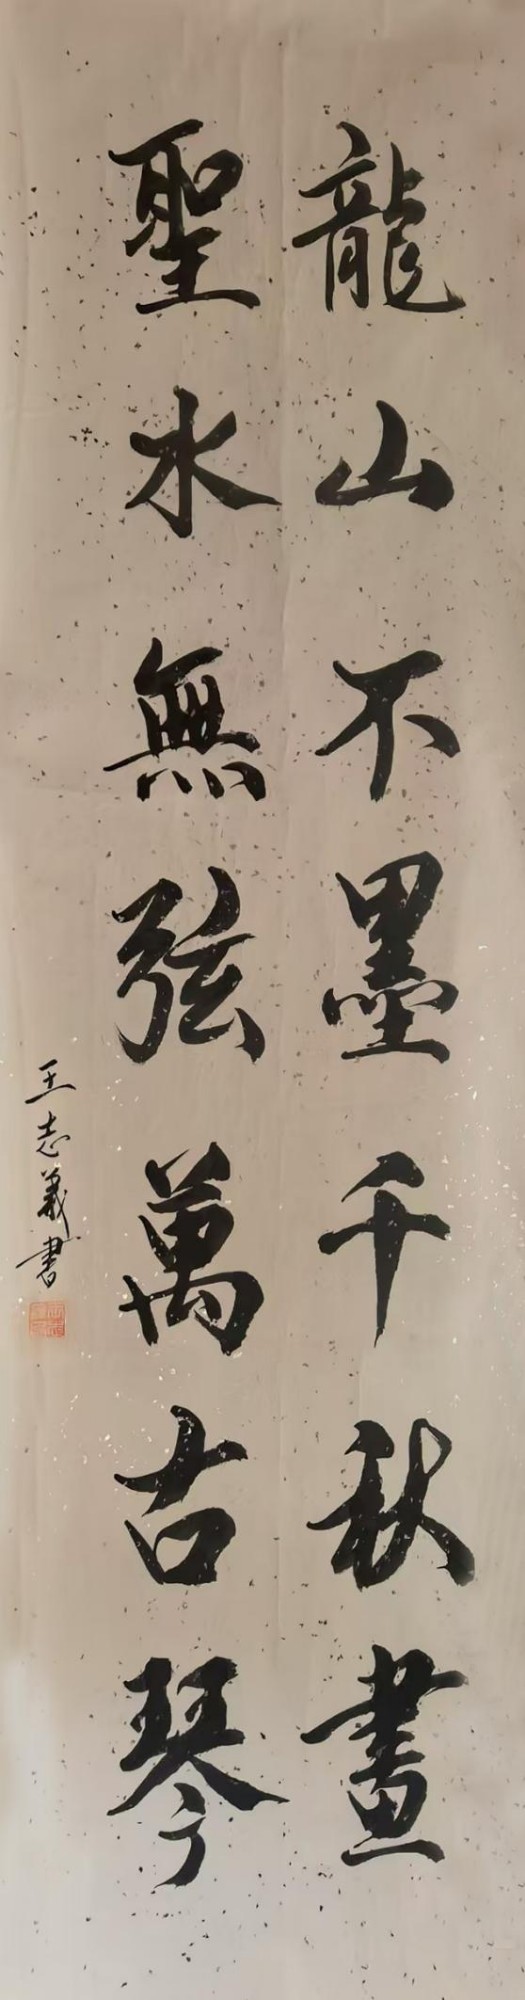 龍山不墨千秋畫
聖水無弦萬古琴
王志義書